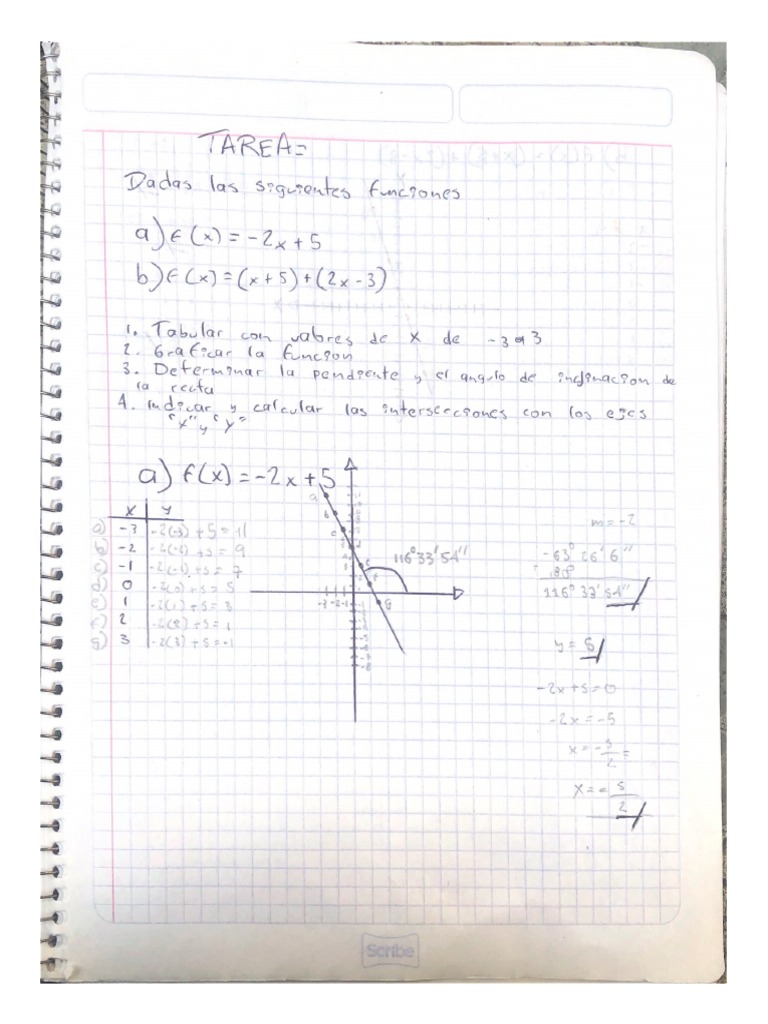 TAREA=
Dadas las siguientes funciones
a) f(x) = -2x + 5
b) f(x) = (x + 5) + (2x - 3)
1. Tabular con valores de x de -3 a 3
2. Graficar la funcion
3. Determinar la pendiente y el angulo de inclinacion de
la recta
4. indicar y calcular las intersecciones con los ejes
"x" y "y"
a) f(x) = -2x + 5
x y
a) -3 -2(-3) + 5 = 11
b) -2 -2(-2) + 5 = 9
c) -1 -2(-1) + 5 = 7
d) 0 -2(0) + 5 = 5
e) 1 -2(1) + 5 = 3
f) 2 -2(2) + 5 = 1
g) 3 -2(3) + 5 = -1
116°33'54"
-3 -2 -1
m = -2
-63° 26' 6"
+ 180
116° 33' 54"
y = 5
-2x + 5 = 0
-2x = -5
x = - 5/2 =
x = - 5/2
Scribe